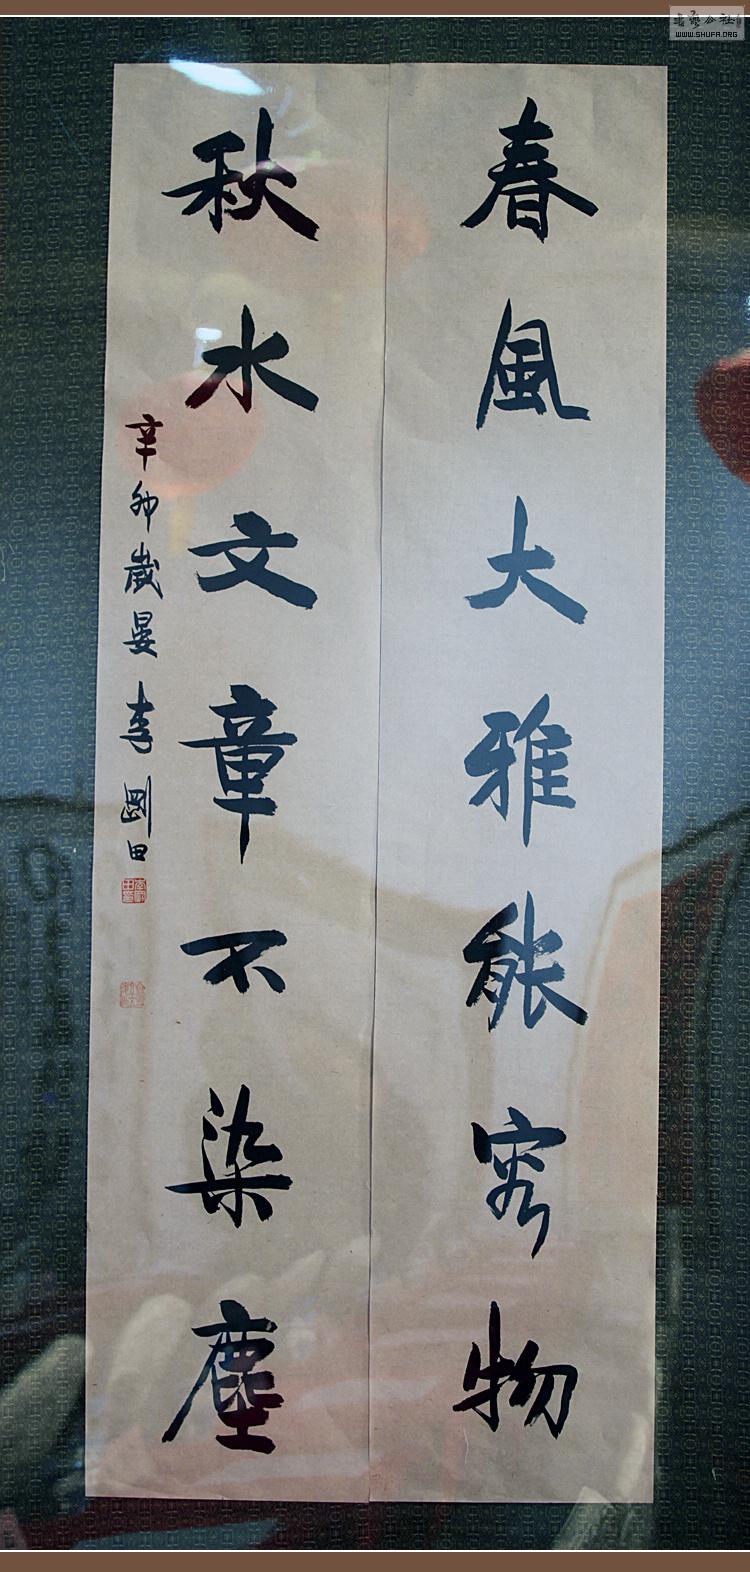 春風大雅能容物
秋水文章不染塵
辛卯歲晏李剛田
WWW.SHUFA.ORG